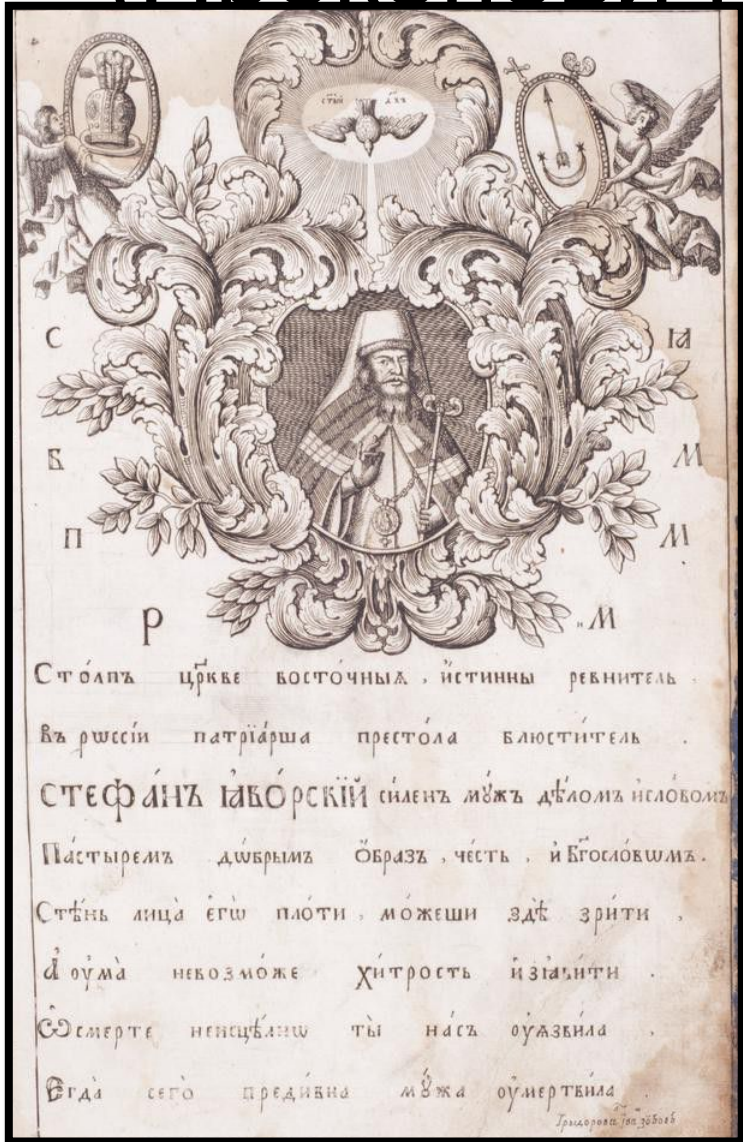 СТ҃ЫЙ ДХ҃Ъ
С Ꙗ
Б М
П М
Р М
Сто́лпъ цр҃кве восто́чныѧ , и҆́стинны ревни́тель .
Въ рѡссі́и патрїа́рша престо́ла блюсти́тель .
СТЕФА́НЪ ꙖВО́РСКЇЙ си́ленъ мꙋ́жъ дѣ́ломъ исло́вомъ
Па́стыремъ дѡ́брымъ ѻ҆́бразъ , че́сть , и҆ Бг҃осло́вѡмъ .
Стѣ́нь лица̀ є҆гѡ̀ пло́ти , мо́жеши здѣ̀ зрѣ́ти ,
А҆ оу҆ма̀ невозмо́же хи́трость и҆з̾ꙗви́ти .
Ѽ сме́рте неисцѣ́лнѡ ты̀ на́съ оу҆ѧзви́ла ,
Є҆гда̀ сего̀ преди́вна мꙋ́жа оу҆мертви́ла .